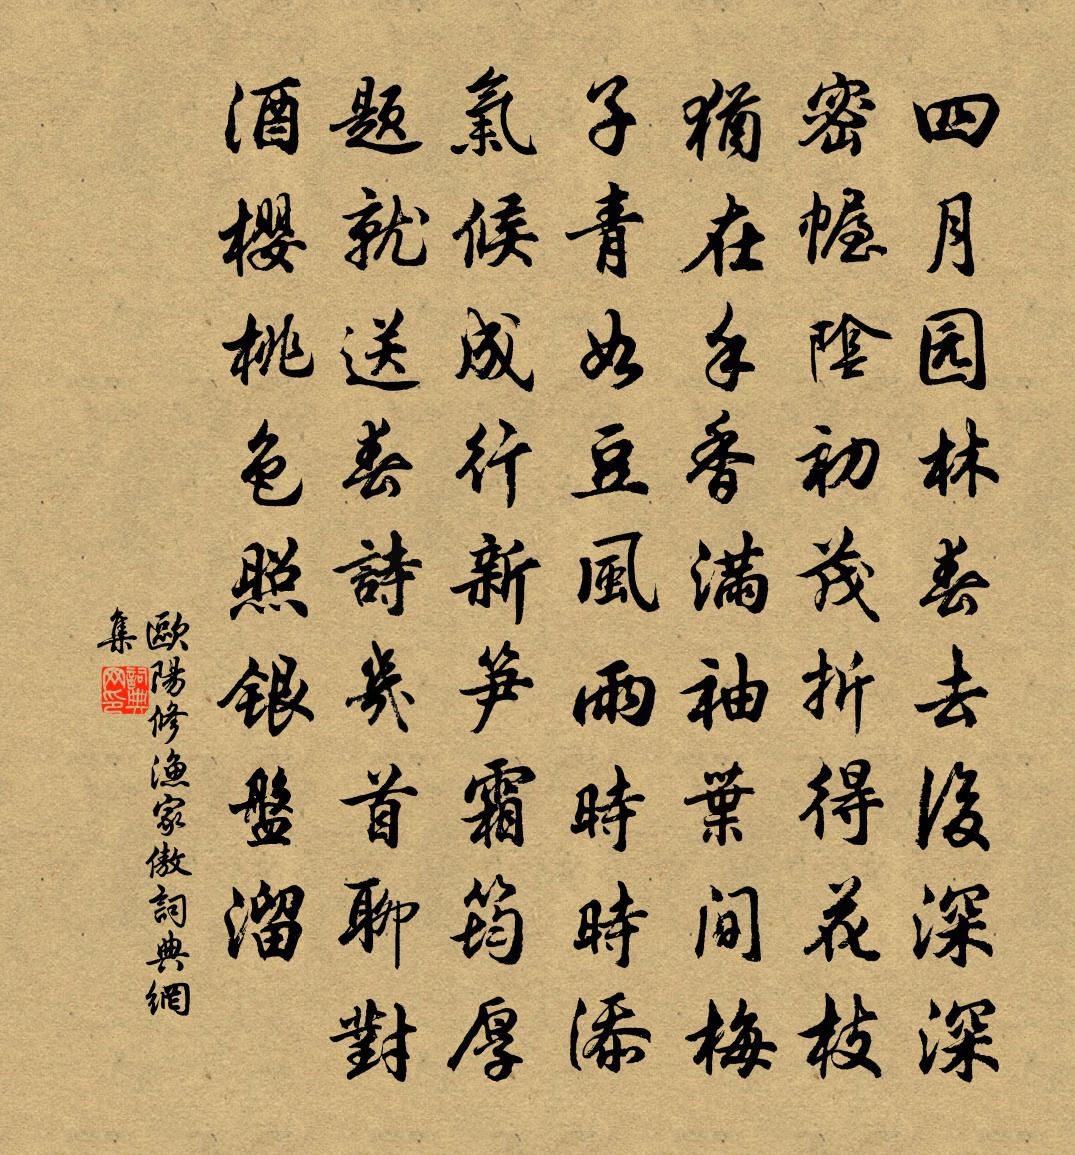 四月园林春去後深深
密幄陰初茂折得花枝
猶在手香滿袖葉間梅
子青如豆風雨時時添
氣候成行新笋霜筠厚
題就送春詩幾首聊對
酒櫻桃色照銀盤溜
歐陽修漁家傲詞典網
集
詞典网印